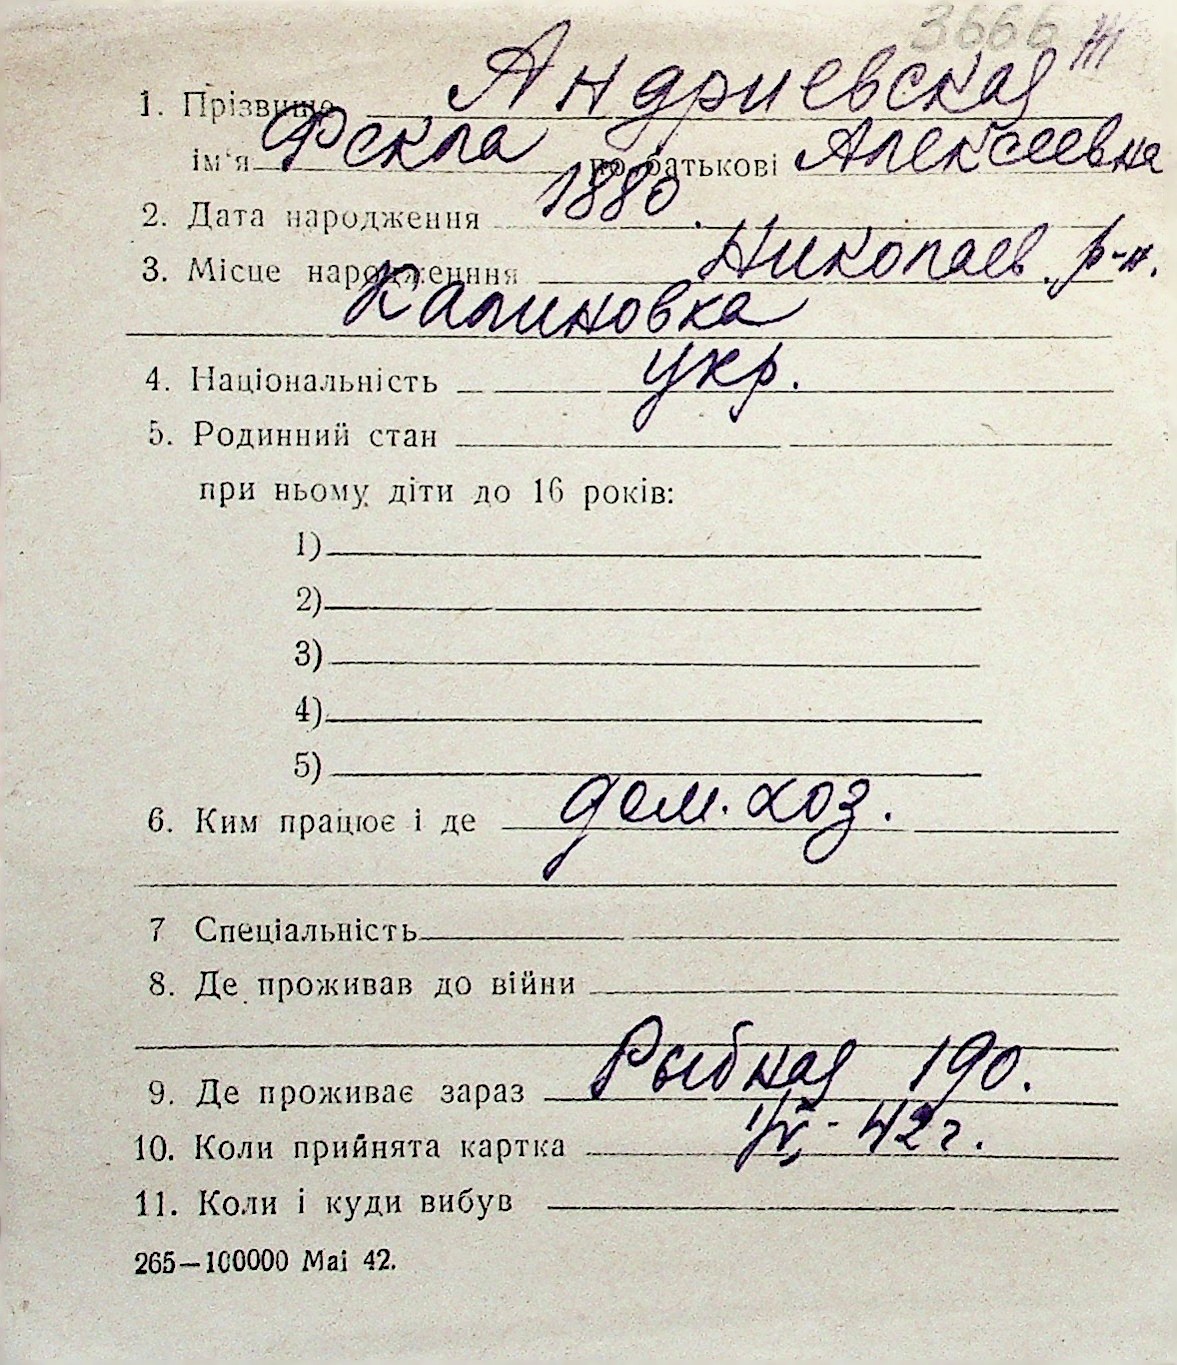 3666 III
1. Прізвище Андриевская
ім'я Фекла по батькові Алексеевна
2. Дата народження 1880.
3. Місце народженння Николаев. р-н.
Калиновка
4. Національність укр.
5. Родинний стан
при ньому діти до 16 років:
1)
2)
3)
4)
5)
6. Ким працює і де дом. хоз.
7 Спеціальність
8. Де проживав до війни
9. Де проживає зараз Рыбная 190.
10. Коли прийнята картка 1/V - 42 г.
11. Коли і куди вибув
265—100000 Mai 42.